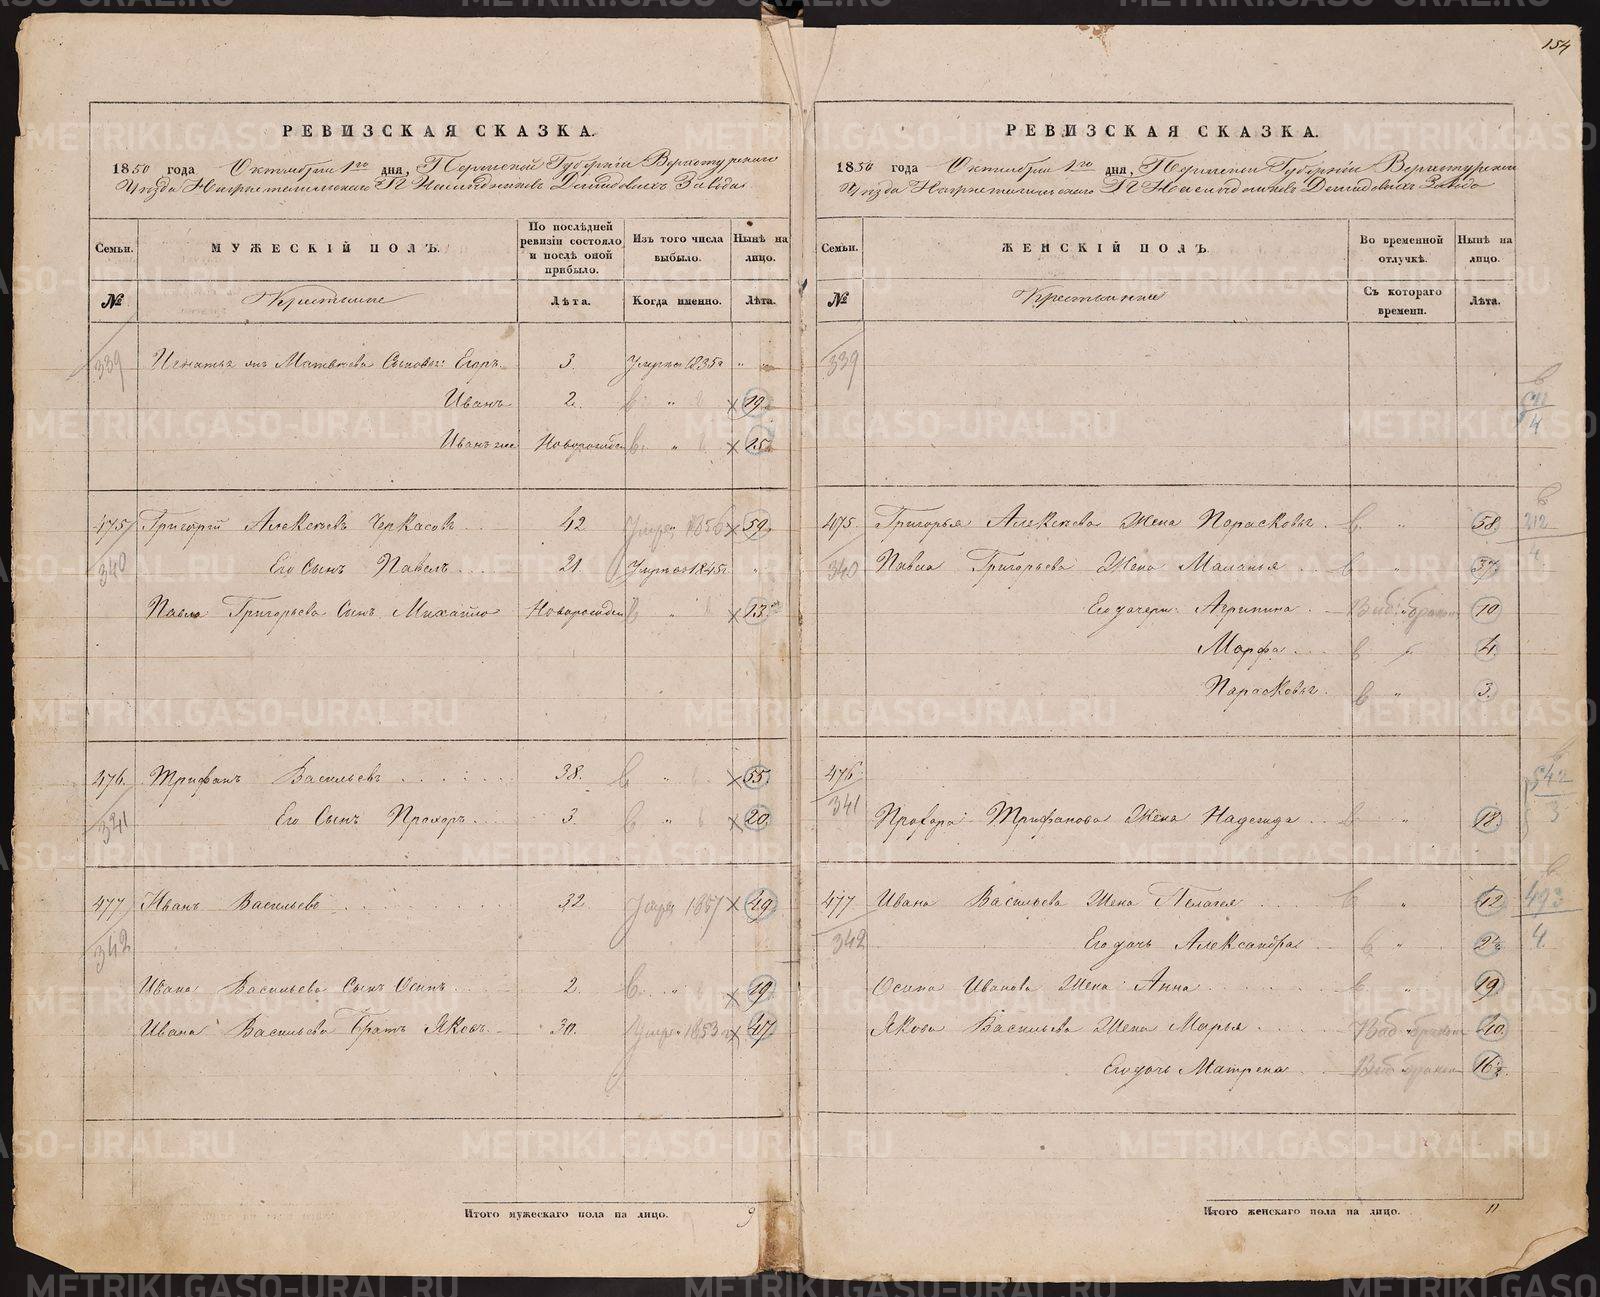 154
РЕВИЗСКАЯ СКАЗКА.
1850 года Октября 1го дня, Пермской Губернiи Верхотурскаго
Уѣзда Нижнетагильскаго П Наслѣдниковъ Демидовыхъ Завода
Семьи.
МУЖЕСКIЙ ПОЛЪ.
По послѣдней ревизiи состояло и послѣ оной прибыло.
Изъ того числа выбыло.
Нынѣ на лицо.
№
Крестьяне
Лѣта.
Когда именно.
Лѣта.
339 Матвѣева Сыновья: Егоръ 3. Умре 1835 " "
Иванъ 2. в " 19
Иванъ же Новорожден в. " 15
475/340 Григорiй Алексѣевъ Черкасовъ 42 Умре 1856 59.
Его Сынъ Павелъ 21 Умре 1845 "
Павла Григорьева Сынъ Михайло Новорожден в " 13
476/341 Трифанъ Васильевъ 38. в " 55.
Его Сынъ Прохоръ 3. в " 20.
477/342 Иванъ Васильевъ 32 Умре 1857 49
Ивана Васильева Сынъ Осипъ 2. в. " 19
Ивана Васильева Братъ Яковъ 30. Умре 1853 47
Итого мужескаго пола на лицо. 9
РЕВИЗСКАЯ СКАЗКА.
1850 года Октября 1го дня, Пермской Губернiи Верхотурскаго
Уѣзда Нижнетагильскаго П Наслѣдниковъ Демидовыхъ Завода
Семьи.
ЖЕНСКIЙ ПОЛЪ.
Во временной отлучкѣ.
Нынѣ на лицо.
№
Крестьянки
Съ котораго времени.
Лѣта.
339
475/340 Григорья Алексѣева Жена Парасковья в. " 58
Павла Григорьева Жена Маланья в " 37
Его дочери: Агрипина 10
Марфа в 4.
Парасковья. в " 3.
212
4
476/341
Прохора Трифанова Жена Надежда в " 18.
542
3
477/342 Ивана Васильева Жена Пелагея в " 42
Его дочь Александра в " 2½
493
4
Осипа Иванова Жена Анна в " 19
Якова Васильева Жена Марья 40.
Его дочь Матрена 16½
Итого женскаго пола на лицо. 11
METRIKI.GASO-URAL.RU